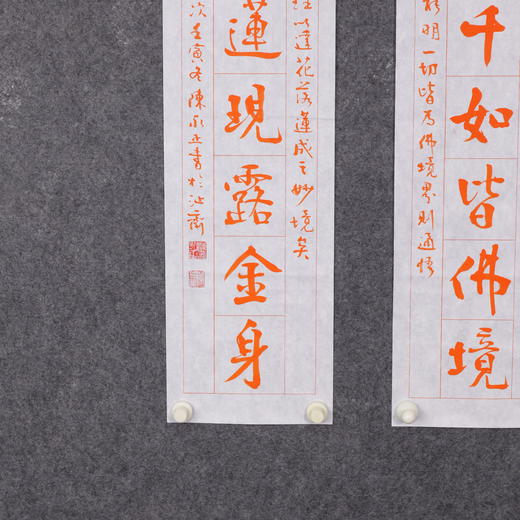 千如皆佛境
明一切皆為佛境界則通悟
以達花落蓮成之妙境矣
蓮現露金身
次壬寅冬陳永正書於沚齋